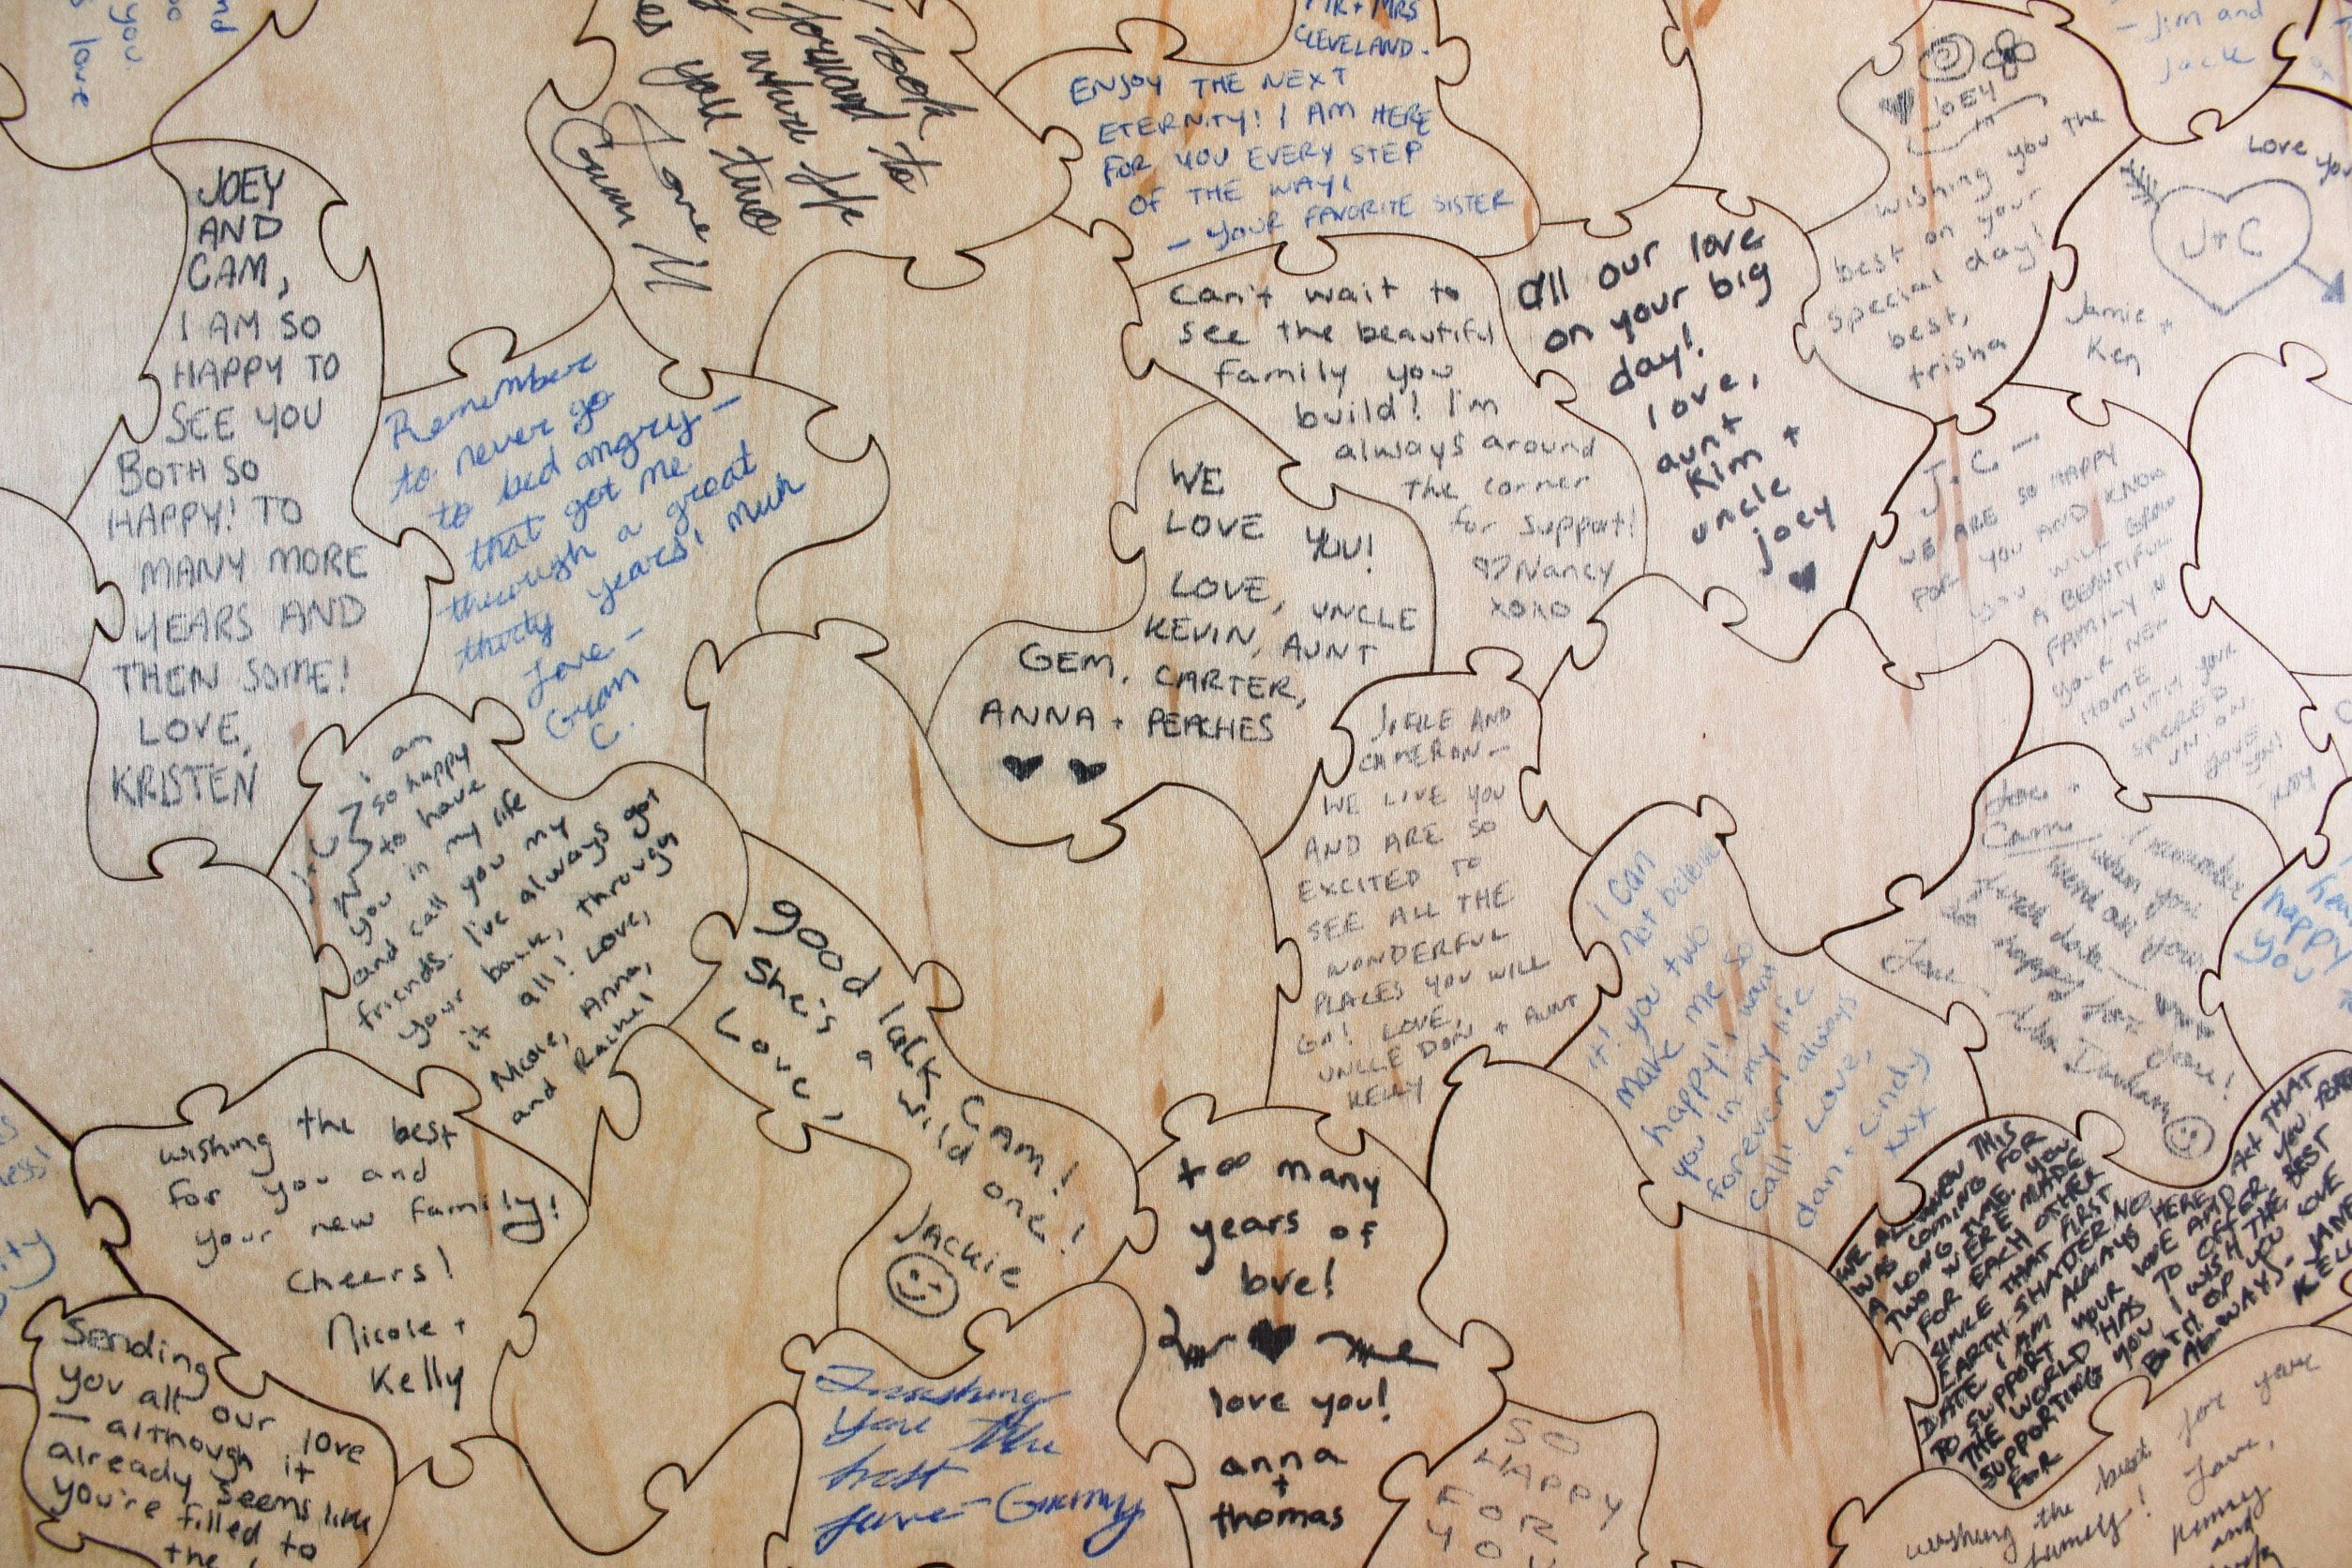 you
love
look
forward to
what life
you two
Love
Gram M
MR + MRS
CLEVELAND.
ENJOY THE NEXT
ETERNITY! I AM HERE
FOR YOU EVERY STEP
OF THE WAY!
- YOUR FAVORITE SISTER
JOEY
wishing you the
best on your
special day!
best,
trisha
- Jim and
Jack
Love you
J + C
Jamie +
Ken
JOEY
AND
CAM,
I AM SO
HAPPY TO
SEE YOU
BOTH SO
HAPPY! TO
MANY MORE
YEARS AND
THEN SOME!
LOVE,
KRISTEN
Remember
to never go
to bed angry -
that got me
through a great
thirty years! Much
Love -
Gran
C.
Can't wait to
see the beautiful
family you
build! I'm
always around
the corner
for support!
Nancy
xoxo
all our love
on your big
day!
love,
aunt
Kim +
uncle
joey
WE
LOVE YOU!
LOVE, UNCLE
KEVIN, AUNT
GEM, CARTER,
ANNA + PEACHES
J. C -
WE ARE SO HAPPY
FOR YOU AND KNOW
YOU WILL GROW
A BEAUTIFUL
FAMILY IN
YOUR NEW
HOME
WITH YOUR
SACRED
UNION.
LOVE
YOU!
J + C
i am
so happy
to have
you in my life
and call you my
friends. I've always got
your back, through
it all! Love,
Nicole, Anna,
and Rachel
JOELLE AND
CAMERON -
WE LOVE YOU
AND ARE SO
EXCITED TO
SEE ALL THE
WONDERFUL
PLACES YOU WILL
GO! LOVE,
UNCLE DON + AUNT
KELLY
I can
not believe
it! You two
make me so
happy! I want
you in my life
forever! always
call! Love,
dan + cindy
xxx
Joe +
Cam, I remember
when you
went on your
first date -
so happy for
Love
happy
you
good luck CAM!
She's a wild one!
Love,
JACKIE
wishing the best
for you and
your new family!
Cheers!
Nicole +
Kelly
too many
years of
love!
love you!
anna
+
thomas
WE ALL KNEW THIS
WAS COMING FOR
A LONG TIME. YOU
TWO WERE MADE
FOR EACH OTHER
SINCE THAT FIRST
EARTH-SHATTERING
DATE. I AM ALWAYS HERE
TO SUPPORT YOUR LOVE AND ALL THAT
THE WORLD HAS TO OFFER YOU FOR
SUPPORTING YOU. I WISH THE BEST
FOR BOTH OF YOU LOVE
ALWAYS. JANE
Sending
you all our love
- although it
already seems like
you're filled to
the
wishing
you the
best
love - Grammy
SO
HAPPY
FOR
YOU
wishing the best for your
family! Love,
and